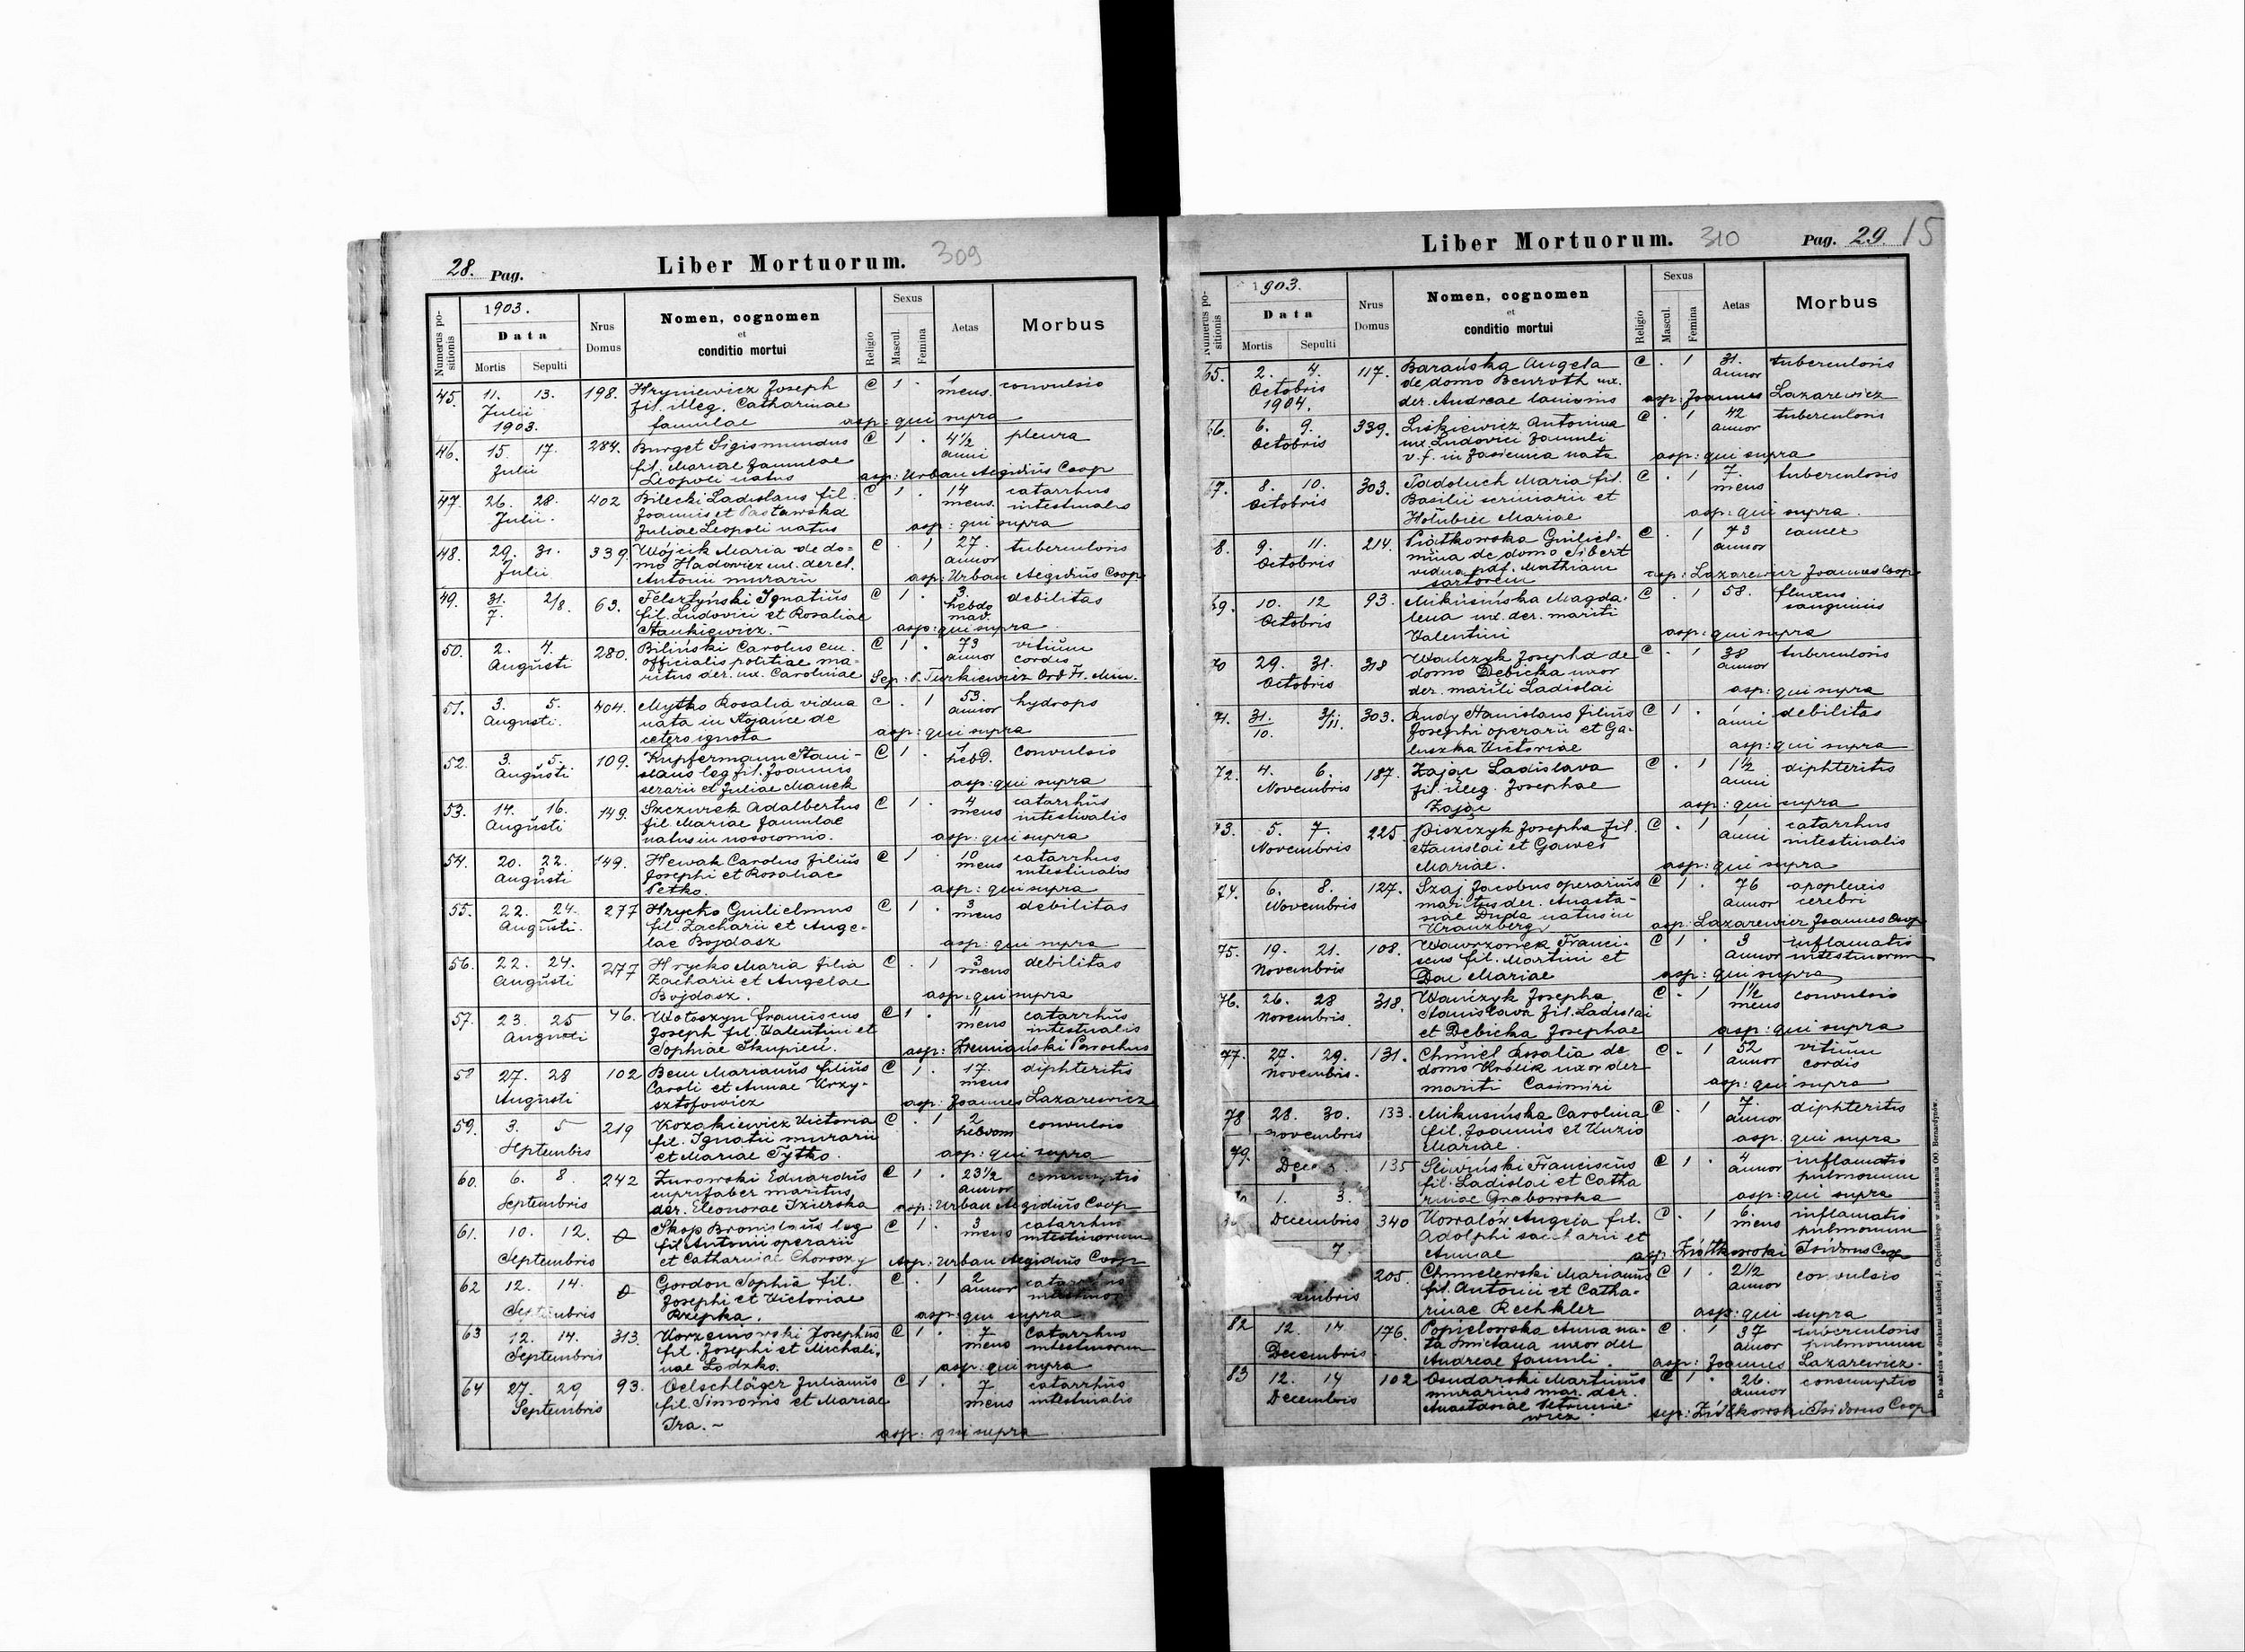 28. Pag. Liber Mortuorum. 309
Numerus positionis
1903.
Data
Mortis Sepulti
Nrus Domus
Nomen, cognomen
et
conditio mortui
Religio
Sexus
Mascul. Femina
Aetas
Morbus
45. 11. 13. 198. Hryniewicz Joseph C 1 . 1 convulsio
Julii fil. illeg. Catharinae mens.
1903. famulae asp: qui supra
46. 15. 17. 284. Burget Sigismundus C 1 . 4½ pleura
Julii fil. Mariae famulae anni
Leopoli natus asp: Urban Aegidius Coop
47. 26. 28. 402 Bilecki Ladislaus fil. C 1 . 14 catarrhus
Julii. Joannis et Pasławska mens. intestinalis
Juliae Leopoli natus asp: qui supra
48. 29. 31. 339. Wójcik Maria de do= C . 1 27. tuberculosis
Julii mo Hadowicz ux. derel. annor
Antonii murarii asp: Urban Aegidius Coop
49. 31. 2/8. 63. Felsztyński Ignatius C 1 . 3. debilitas
7. fil. Ludovici et Rosaliae hebdo
Stankiewicz. asp: qui supra mad.
50. 2. 4. 280. Biliński Carolus em. C 1 . 73 vitium
Augusti officialis politiae ma= annor cordis
ritus der. ux. Carolinae Sep: P. Turkiewicz Ord Fr. Min.
51. 3. 5. 404. Mytko Rosalia vidua C . 1 53. hydrops
Augusti. nata in Stojańce de annor
cetero ignota asp: qui supra
52. 3. 5. 109. Kupfermann Stani- C 1 . 1 convulsio
Augusti slaus leg fil. Joannis hebd.
serarii et Juliae Manek asp: qui supra
53. 14. 16. 149. Szczurek Adalbertus C 1 . 4 catarrhus
Augusti fil Mariae famulae mens intestinalis
natus in nosocomio. asp: qui supra
54. 20. 22. 149. Hewak Carolus filius C 1 . 10 catarrhus
Augusti Josephi et Rosaliae mens intestinalis
Petko. asp: qui supra
55. 22. 24. 277 Hrycko Guilielmus C 1 . 3 debilitas
Augusti. fil. Zacharii et Ange- mens
lae Bojdasz asp: qui supra
56. 22. 24. 277 Hrycko Maria filia C . 1 3 debilitas
Augusti Zacharii et Angelae mens
Bojdasz. asp: qui supra
57. 23. 25 46. Wołoszyn Franciscus C 1 . 11 catarrhus
Augusti Joseph fil. Valentini et mens intestinalis
Sophiae Skupień. asp: Parochus
58 27. 28 102 Bem Marianus filius C 1 . 17. diphteritis
Augusti Caroli et Annae Krzy- mens
sztofowicz asp: Joannes Lazarewicz
59. 3. 5 219 Kozakiewicz Victoria C . 1 2 convulsio
Septembris fil. Ignatii murarii hebdom
et Mariae Tytko. asp: qui supra
60. 6. 8. 242 Żurowski Eduardus C 1 . 23½ consumptio
Septembris cuprifaber maritus annor
der. Eleonorae asp: Urban Aegidius Coop
61. 10. 12. Skop Bronislaus leg C 1 . 3 catarrhus
Septembris fil Antonii operarii mens intestinorum
et Catharinae Choroszy Asp: Urban Aegidius Coop
62 12. 14. Gordon Sophia fil. C . 1 2 catarrhus
Septembris Josephi et Victoriae annor
Rzepka. asp: qui supra
63 12. 14. 313. Korzeniowski Josephus C 1 . 7 catarrhus
Septembris fil. Josephi et Michali- mens intestinorum
nae Lodzko. asp: qui supra
64 27. 29 93. Oelschläger Julianus C 1 . 7 catarrhus
Septembris fil. Simonis et Mariae mens intestinalis
Tra. asp: qui supra
Liber Mortuorum. 310 Pag. 29. 15
Numerus positionis
1903.
Data
Mortis Sepulti
Nrus Domus
Nomen, cognomen
et
conditio mortui
Religio
Sexus
Mascul. Femina
Aetas
Morbus
65. 2. 4. 117. Barańska Angela C . 1 31. tuberculosis
Octobris de domo Benroth ux. annor
1904. der. Andreae lanionis asp: Joannes Lazarewicz
66. 6. 9. 339. Liskiewicz Antonina C . 1 42 tuberculosis
Octobris ux. Ludovici famuli annor
v. f. in Jasienica nata asp: qui supra
67. 8. 10. 303. Tadoluch Maria fil. C . 1 7. tuberculosis
Octobris Basilii scriniarii et mens
Hołubiec Mariae asp: qui supra.
8. 9. 11. 214. Piątkowska Guiliel- C . 1 43 cancer
Octobris mina de domo Sibert annor
vidua pdf. Mathiam
sartorem asp: Lazarewicz Joannes Coop
69. 10. 12 93. Mikusińska Magda- C . 1 58. fluxus
Octobris lena ux. der. mariti sanguinis
Valentini asp: qui supra
70 29. 31. 318 Wańczyk Josepha de C . 1 38 tuberculosis
Octobris domo Dębicka uxor annor
der. mariti Ladislai asp: qui supra
71. 31. 3/11. 303. Rudy Stanislaus filius C 1 . 1 debilitas
10. Josephi operarii et Ga- anni
luszka Victoriae asp: qui supra
72. 4. 6. 187. Zając Ladislava C . 1 1½ diphteritis
Novembris fil. illeg. Josephae anni
Zając asp: qui supra
73. 5. 7. 225 Piszczyk Josepha fil. C . 1 1 catarrhus
Novembris Stanislai et Gaweł anni intestinalis
Mariae. asp: qui supra
74. 6. 8. 127. Szaj Jacobus operarius C 1 . 76 apoplexis
Novembris maritus der. Anasta- annor cerebri
siae Duda natus in
Kranzberg asp: Lazarewicz Joannes Coop
75. 19. 21. 108. Wawrzonek Franci- C 1 . 3 inflamatis
Novembris scus fil. Martini et annor intestinorum
Dac Mariae asp: qui supra
76. 26. 28 318. Wańczyk Josepha C . 1 1½ convulsio
Novembris. Stanislava fil. Ladislai mens
et Dębicka Josephae asp: qui supra
77. 27. 29. 131. Chmiel Rosalia de C . 1 52 vitium
Novembris. domo Królik uxor der annor cordis
mariti Casimiri asp: qui supra
78 28. 30. 133. Mikusińska Carolina C . 1 7. diphteritis
Novembris fil. Joannis et Kuzio annor
Mariae. asp. qui supra
79. 135 Śliwiński Franciscus C 1 . 4 inflamatis
1. 3. fil. Ladislai et Catha annor pulmonum
rinae Grabowska asp: qui supra
Decembris 340 Kowalów Angela fil. C . 1 6. inflamatis
7. Adolphi et mens pulmonum
Annae asp: Ziółkowski Isidorus Coop
205. Chmielewski Marianus C 1 . 2½ convulsio
embris fil. Antonii et Catha- annor
rinae Rechkler asp: qui supra
82 12. 14 176. Popielowska Anna na- C . 1 37 tuberculosis
Decembris ta Śmietana uxor der annor pulmonum
Andreae famuli. asp: Joannes Lazarewicz.
83 12. 14 102 Osudarski Martinus C 1 . 26. consumptio
Decembris murarius mar. der. annor
Anastasiae Petrunie-
wicz sep: Ziółkowski Isidorus Coop
Do nabycia w drukarni katolickiej J. Chęcińskiego w zabudowaniu OO. Bernardynów.